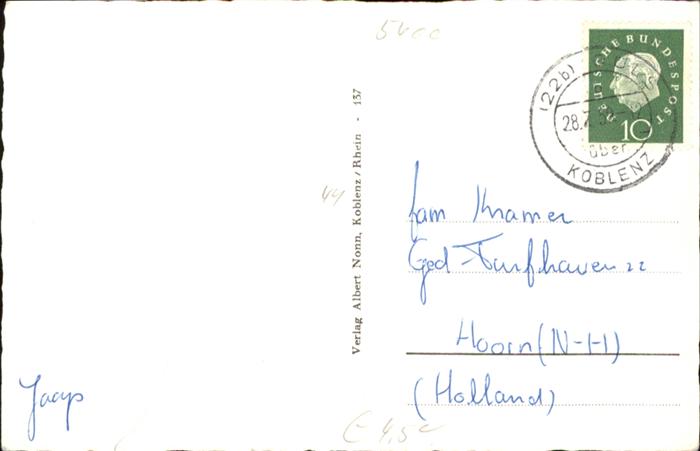 5400
DEUTSCHE BUNDESPOST
10
(22b)
28.7.59
über
KOBLENZ
Verlag Albert Nonn, Koblenz/Rhein - 137
44
fam Kramer
Ged Turfhaven 22
Hoorn (N-H)
(Holland)
Jaap
€ 4,50